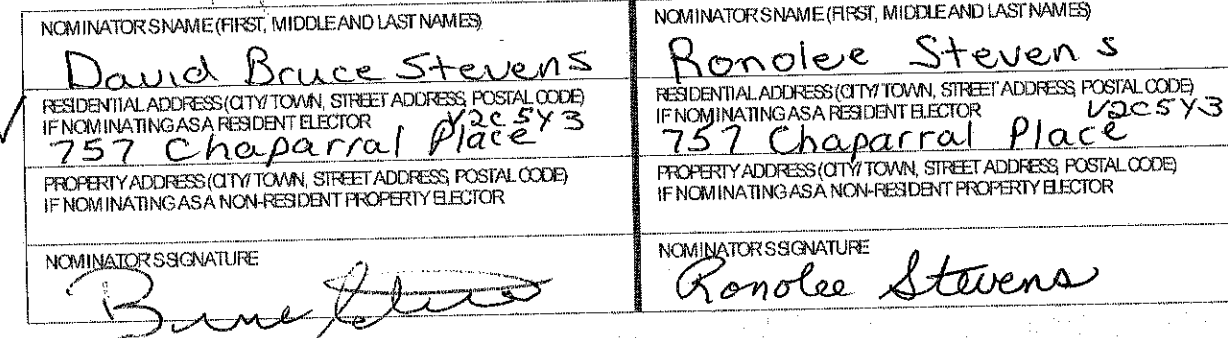 NOMINATORS NAME (FIRST, MIDDLE AND LAST NAMES)
David Bruce Stevens
RESIDENTIAL ADDRESS (CITY/TOWN, STREET ADDRESS, POSTAL CODE)
IF NOMINATING AS A RESIDENT ELECTOR V2C 5Y3
757 Chaparral Place
PROPERTY ADDRESS (CITY/TOWN, STREET ADDRESS, POSTAL CODE)
IF NOMINATING AS A NON-RESIDENT PROPERTY ELECTOR
NOMINATORS SIGNATURE
Bruce Stevens
NOMINATORS NAME (FIRST, MIDDLE AND LAST NAMES)
Ronolee Stevens
RESIDENTIAL ADDRESS (CITY/TOWN, STREET ADDRESS, POSTAL CODE)
IF NOMINATING AS A RESIDENT ELECTOR V2C5Y3
757 Chaparral Place
PROPERTY ADDRESS (CITY/TOWN, STREET ADDRESS, POSTAL CODE)
IF NOMINATING AS A NON-RESIDENT PROPERTY ELECTOR
NOMINATORS SIGNATURE
Ronolee Stevens